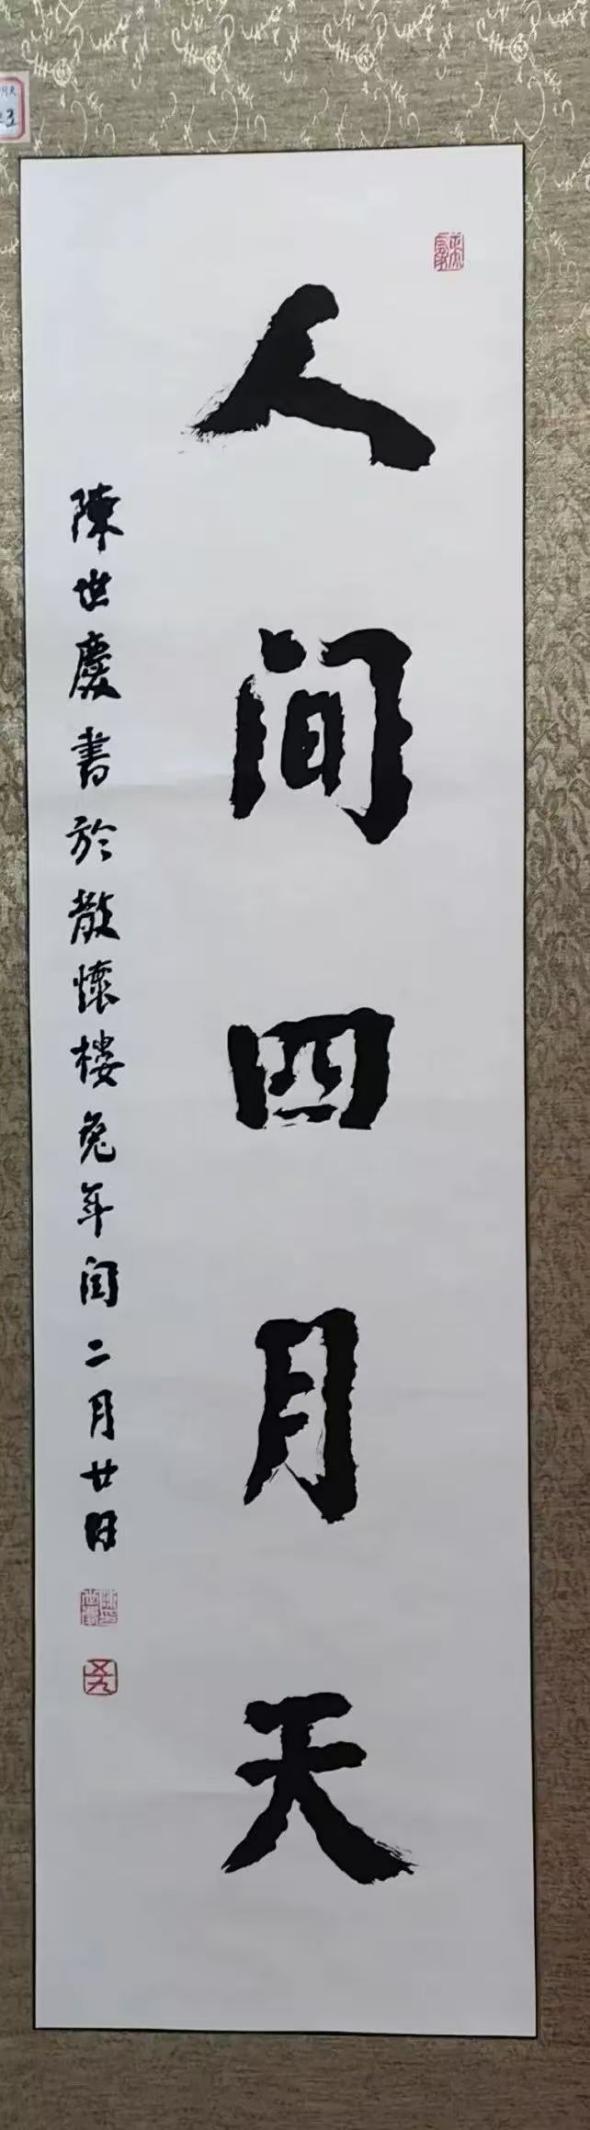 人间四月天
陳世慶書於散懷楼兔年闰二月廿日